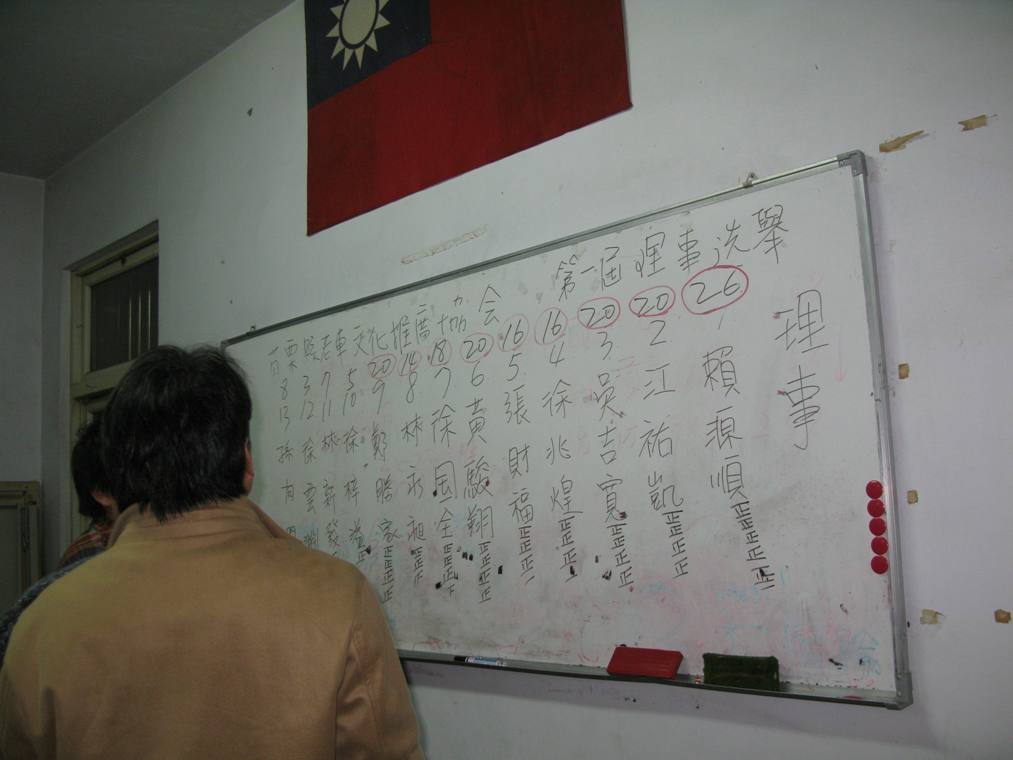 苗栗縣老車文化推廣協会 第一屆理事选舉
理事
26 1 賴源順 正正正正正一
20 2 江祐凱 正正正正
20 3 吳吉寬 正正正正
16 4 徐兆煌 正正正一
16 5 張財福 正正正一
20 6 黃駿翔 正正正正
18 7 徐国全
14 8 林永
20 9 鄭勝家 正正正正
5 10 徐梓
7 11 林新
3 12 徐雲
8 13 孫有